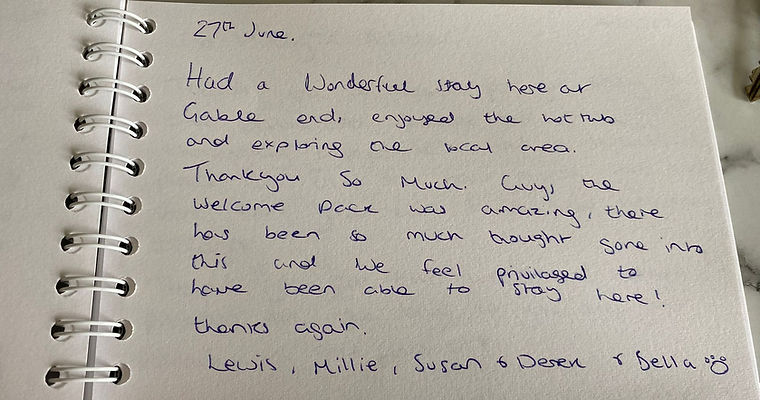 27th June.
Had a Wonderful stay here at
Gable end, enjoyed the hot tub
and exploring the local area.
Thankyou So Much. Guys, the
welcome pack was amazing, there
has been so much thought gone into
this and we feel privilaged to
have been able to stay here!
thanks again.
Lewis, Millie, Susan & Derek & Bella